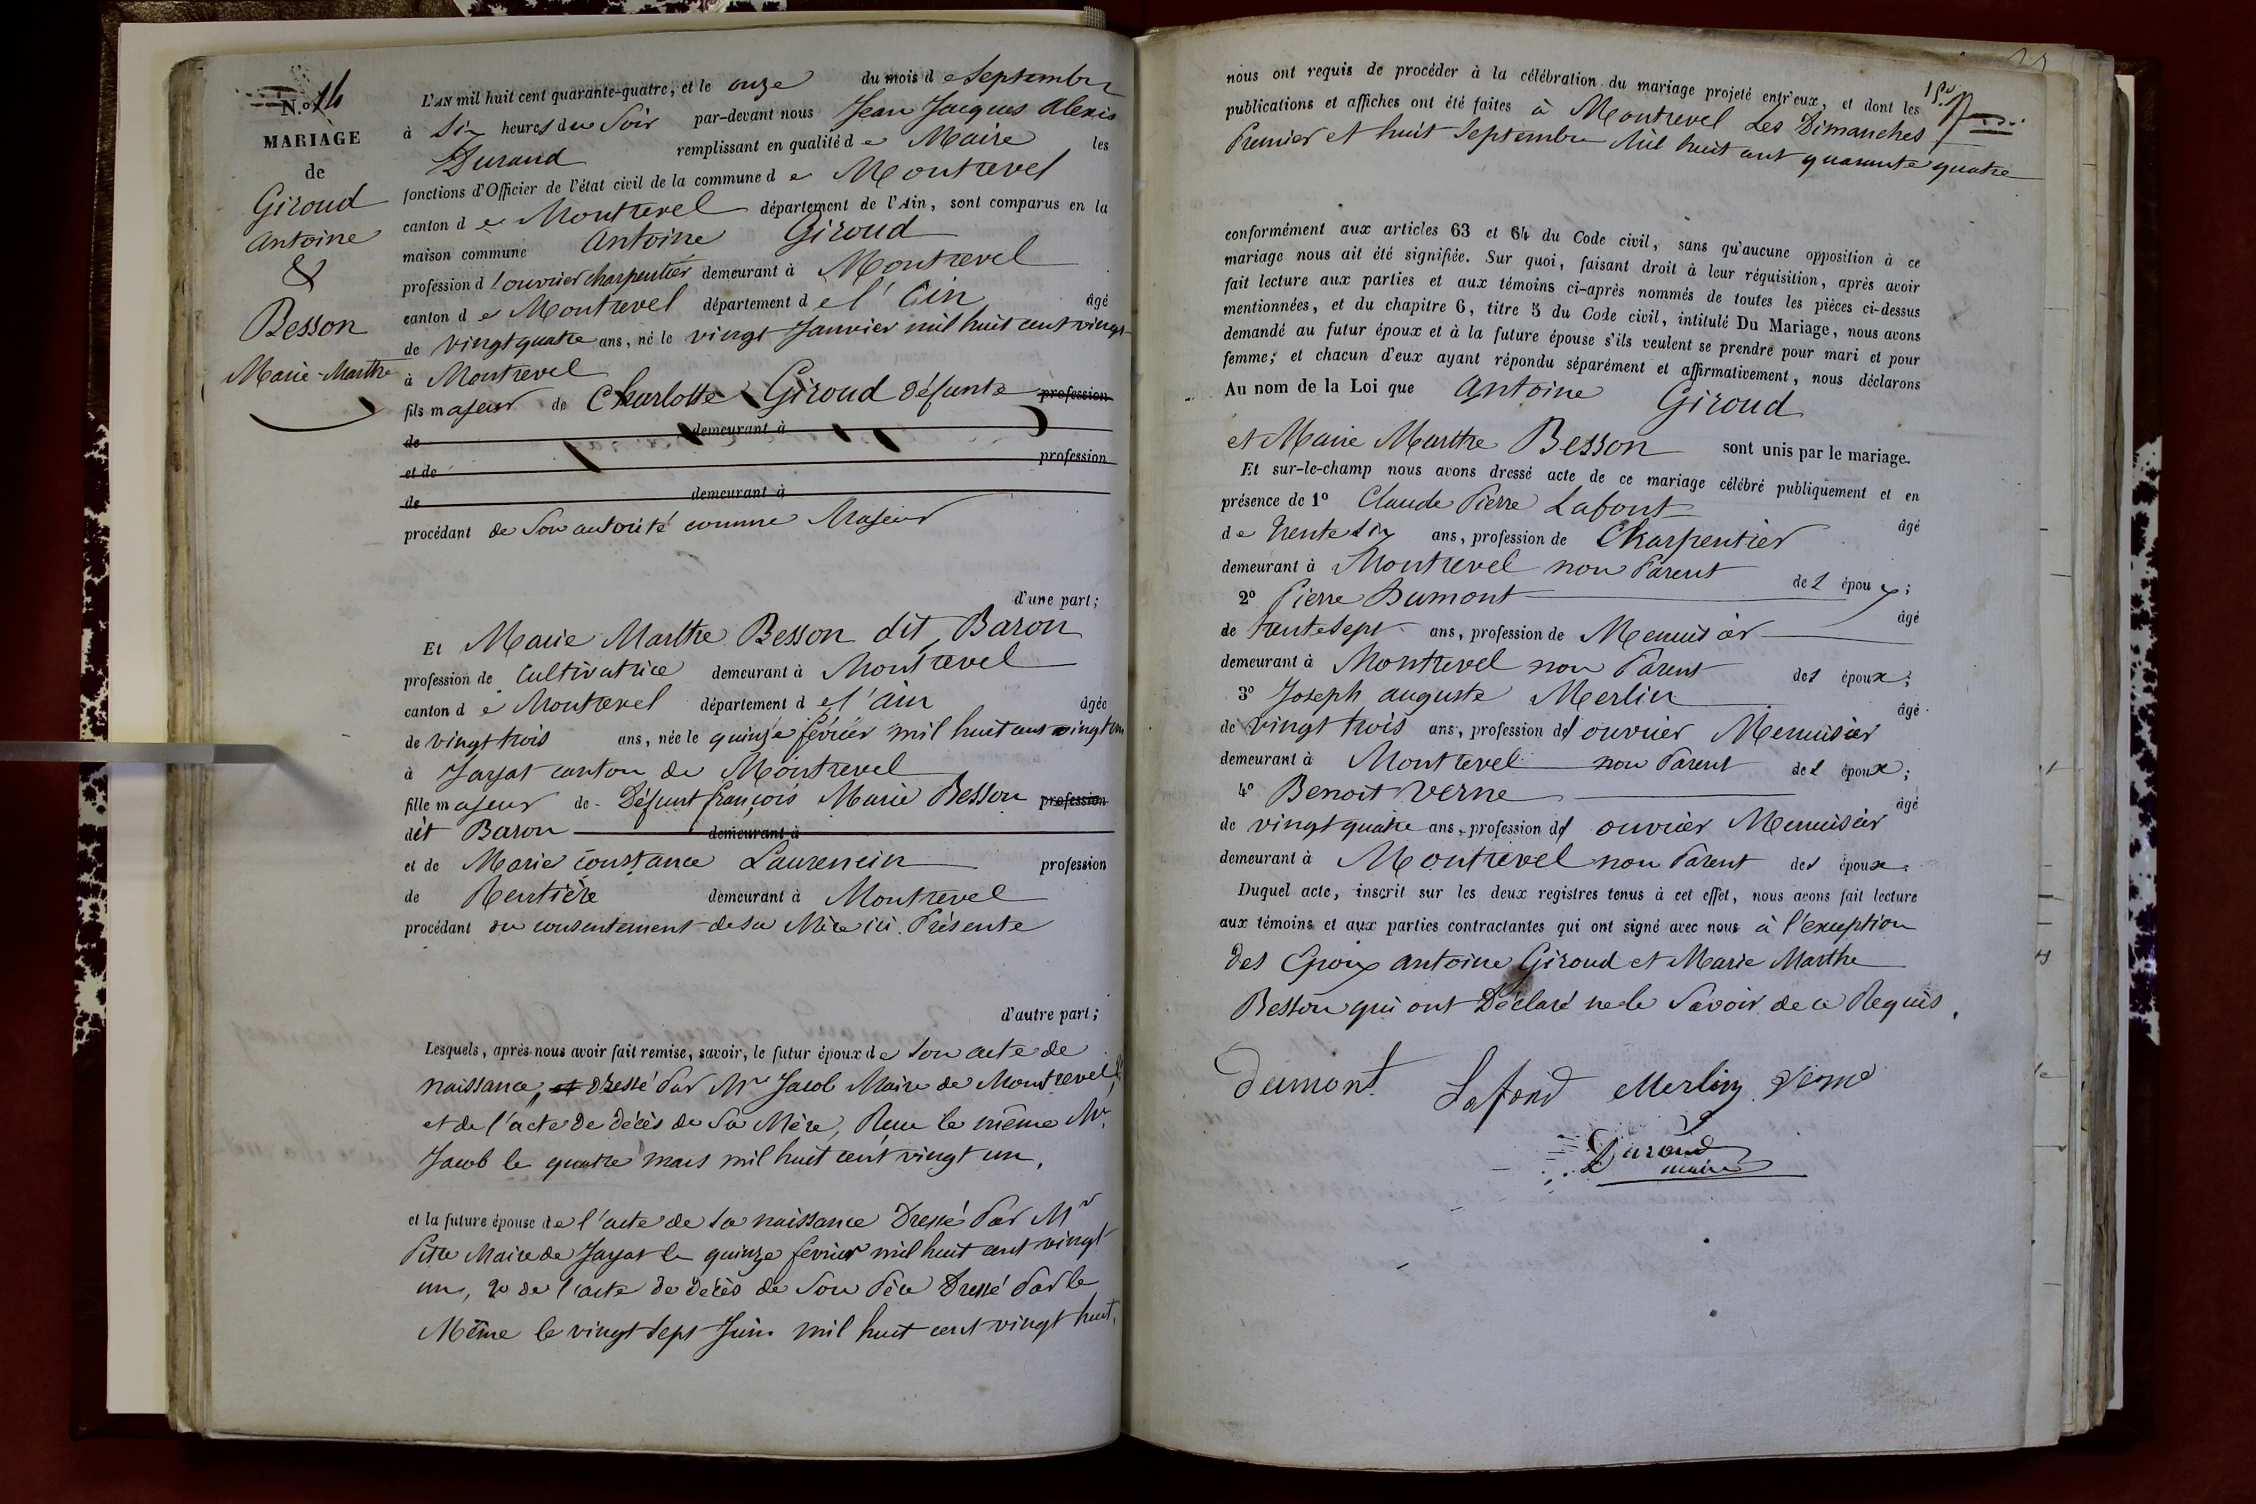 N.º 14
MARIAGE
de
Giroud
Antoine
&
Besson
Marie-Marthe
L'AN mil huit cent quarante-quatre, et le onze du mois de Septembre
à Six heures du Soir par-devant nous Jean Jacques Alexis
Durand remplissant en qualité de Maire les
fonctions d'Officier de l'état civil de la commune de Montrevel
canton de Montrevel département de l'Ain, sont comparus en la
maison commune Antoine Giroud
profession d'ouvrier charpentier demeurant à Montrevel
canton de Montrevel département de l'Ain âgé
de vingt quatre ans, né le vingt Janvier mil huit cent vingt
à Montrevel
fils majeur de Charlotte Giroud défunte profession
de demeurant à
et de profession
de demeurant à
procédant de Son autorité comme Majeur
d'une part;
Et Marie Marthe Besson dit Baron
profession de Cultivatrice demeurant à Montrevel
canton de Montrevel département de l'ain âgée
de vingt trois ans, née le quinze février mil huit cent vingt un
à Jayat canton de Montrevel
fille majeur de Défunt françois Marie Besson profession
dit Baron demeurant à
et de Marie Constance Laurencin profession
de Rentière demeurant à Montrevel
procédant du consentement de sa Mère ici Présente
d'autre part;
Lesquels, après nous avoir fait remise, savoir, le futur époux de Son acte de
naissance, et dressé Par Mr Jacob Maire de Montrevel
et de l'acte de décès de Sa Mère, Reçu le même Mr
Jacob le quatre mars mil huit cent vingt un,
et la future épouse de l'acte de Sa naissance Dressé Par Mr
Pitre Maire de Jayat le quinze février mil huit cent vingt
un, 2º de l'acte de décès de Son Père Dressé Par le
Même le vingt Sept Juin mil huit cent vingt huit,
nous ont requis de procéder à la célébration du mariage projeté entr'eux, et dont les
publications et affiches ont été faites à Montrevel Les Dimanches
Premier et huit Septembre Mil huit cent quarante quatre
conformément aux articles 63 et 64 du Code civil, sans qu'aucune opposition à ce
mariage nous ait été signifiée. Sur quoi, faisant droit à leur réquisition, après avoir
fait lecture aux parties et aux témoins ci-après nommés de toutes les pièces ci-dessus
mentionnées, et du chapitre 6, titre 5 du Code civil, intitulé Du Mariage, nous avons
demandé au futur époux et à la future épouse s'ils veulent se prendre pour mari et pour
femme; et chacun d'eux ayant répondu séparément et affirmativement, nous déclarons
Au nom de la Loi que Antoine Giroud
et Marie Marthe Besson sont unis par le mariage.
Et sur-le-champ nous avons dressé acte de ce mariage célébré publiquement et en
présence de 1º Claude Pierre Lafont âgé
de trente Six ans, profession de Charpentier
demeurant à Montrevel non Parent des époux;
2º Pierre Dumont âgé
de trente Sept ans, profession de Menuisier
demeurant à Montrevel non Parent des époux;
3º Joseph auguste Merlin âgé
de vingt trois ans, profession d'ouvrier Menuisier
demeurant à Montrevel non Parent des époux;
4º Benoit Verne âgé
de vingt quatre ans, profession d'ouvrier Menuisier
demeurant à Montrevel non Parent des époux.
Duquel acte, inscrit sur les deux registres tenus à cet effet, nous avons fait lecture
aux témoins et aux parties contractantes qui ont signé avec nous à l'exception
des Epoux Antoine Giroud et Marie Marthe
Besson qui ont Déclaré ne le Savoir de ce Requis.
Dumont Lafond Merlin Verne
Durand
maire